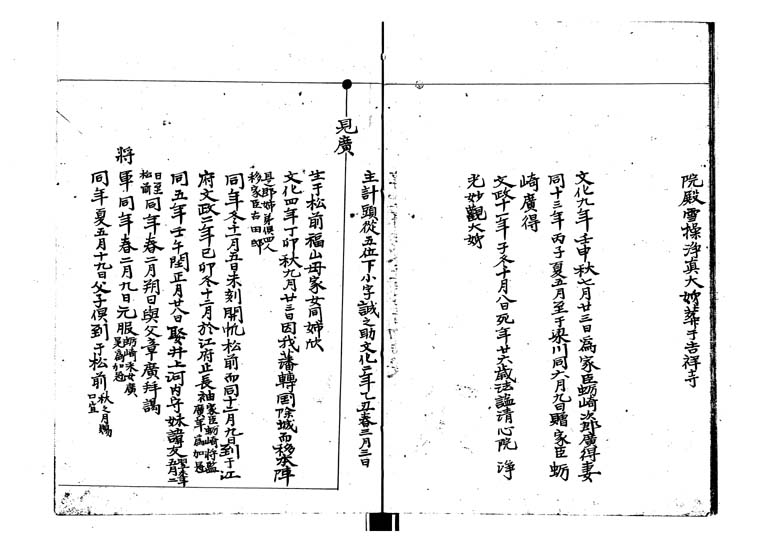 院殿雪操淨真大姉葬于吉祥寺
文化九年壬申秋七月廿三日為家臣蛎崎次郎廣得妻
同十三年丙子夏五月至于梁川同六月九日賜家臣蛎
崎廣得
文政十一年子冬十月八日死年廿六歳法諡清心院淨
光妙觀大姉
見廣
主計頭從五位下小字誠之助文化二年乙丑春三月三日
生于松前福山母家女同婦欣
文化四年丁卯秋九月廿三日因我藩轉国除城而移本陣
与郎姉弟倶四人
移家臣右田邸
同年冬十一月五日未刻開帆松前而同十二月九日到于江
府文政二年己卯冬十二月於江府止長袖家臣蛎崎将監
廣年為加
同五年壬午閏正月廿八日娶井上河内守妹諱友
五月二
日至
松前
同年春二月朔日與父章廣拜謁
將軍同年春二月九日元服蛎崎
廣
為加
同年夏五月十九日父子倶到于松前秋之月賜
口宣